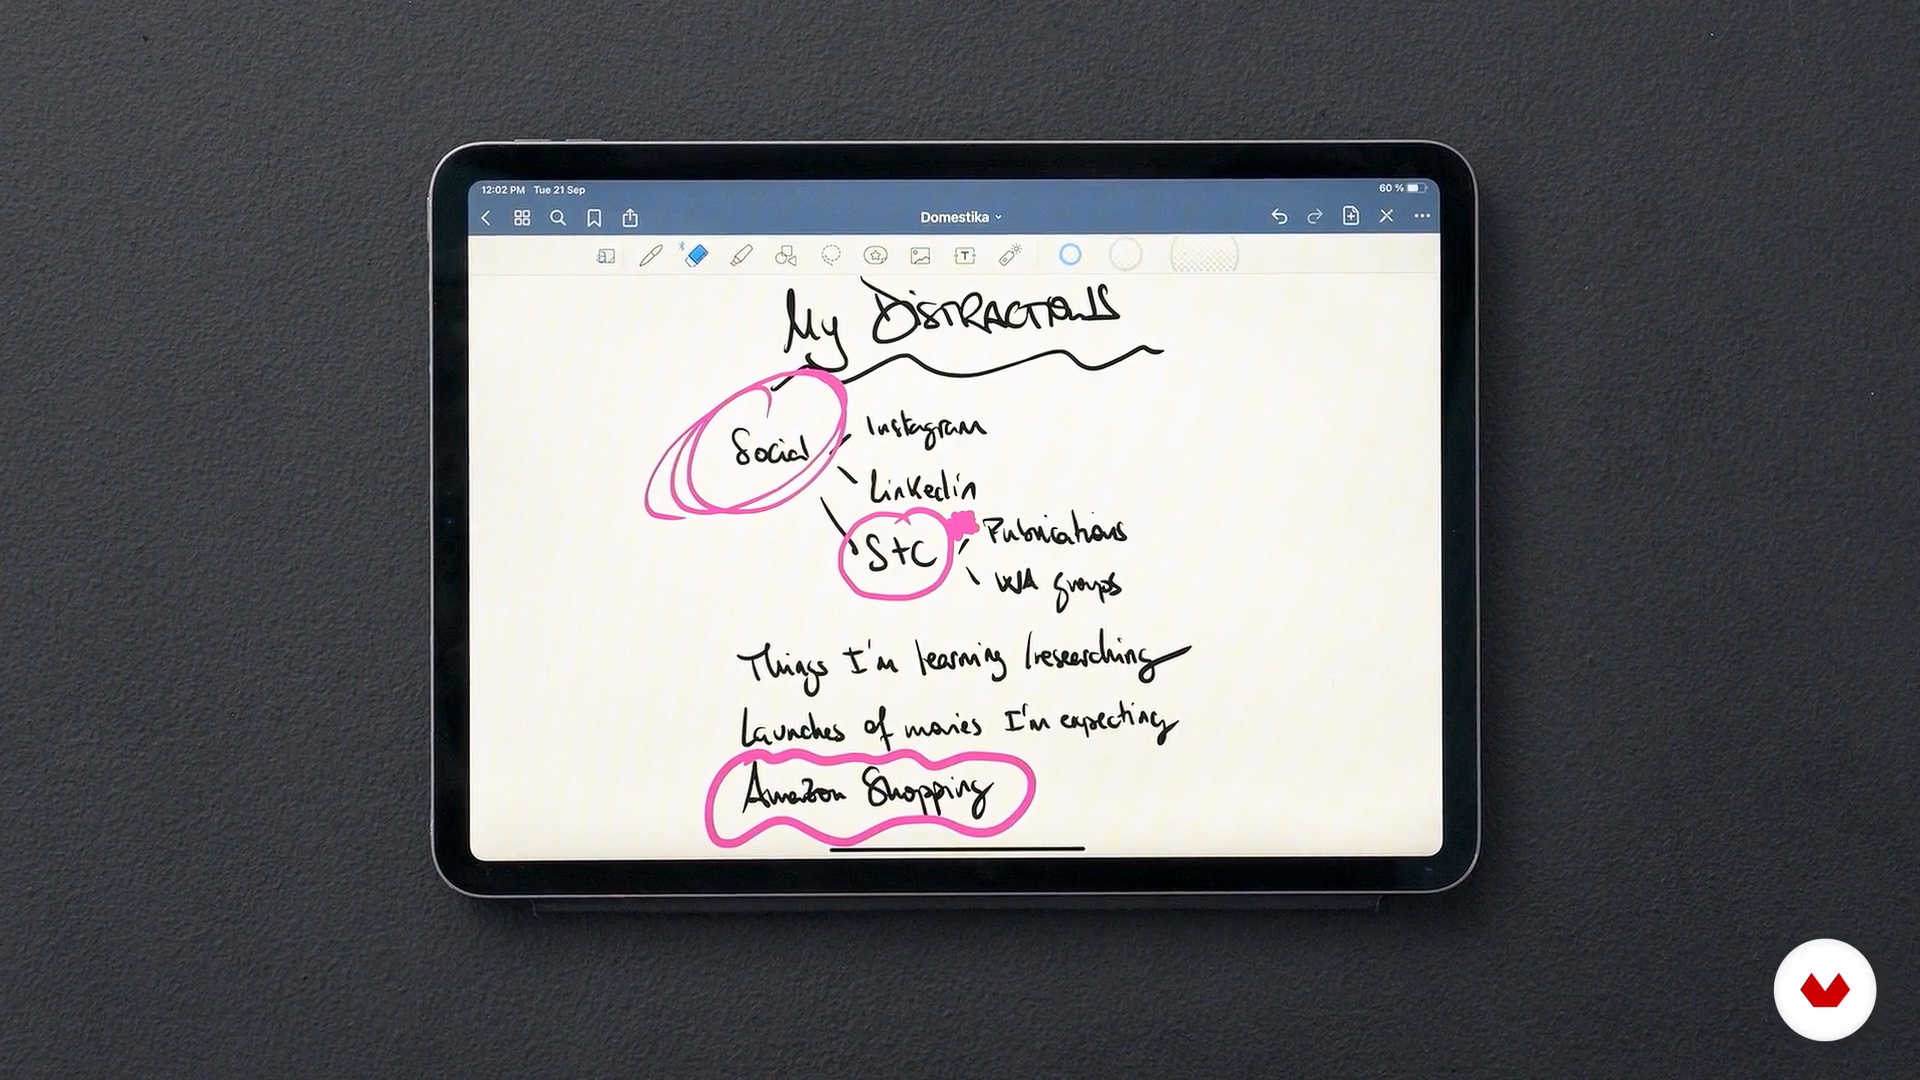 12:02 PM Tue 21 Sep
60 %
Domestika
T
My DISTRACTIONS
Social
Instagram
Linkedin
S+C
Publications
WA groups
Things I'm learning / researching
Launches of movies I'm expecting
Amazon Shopping